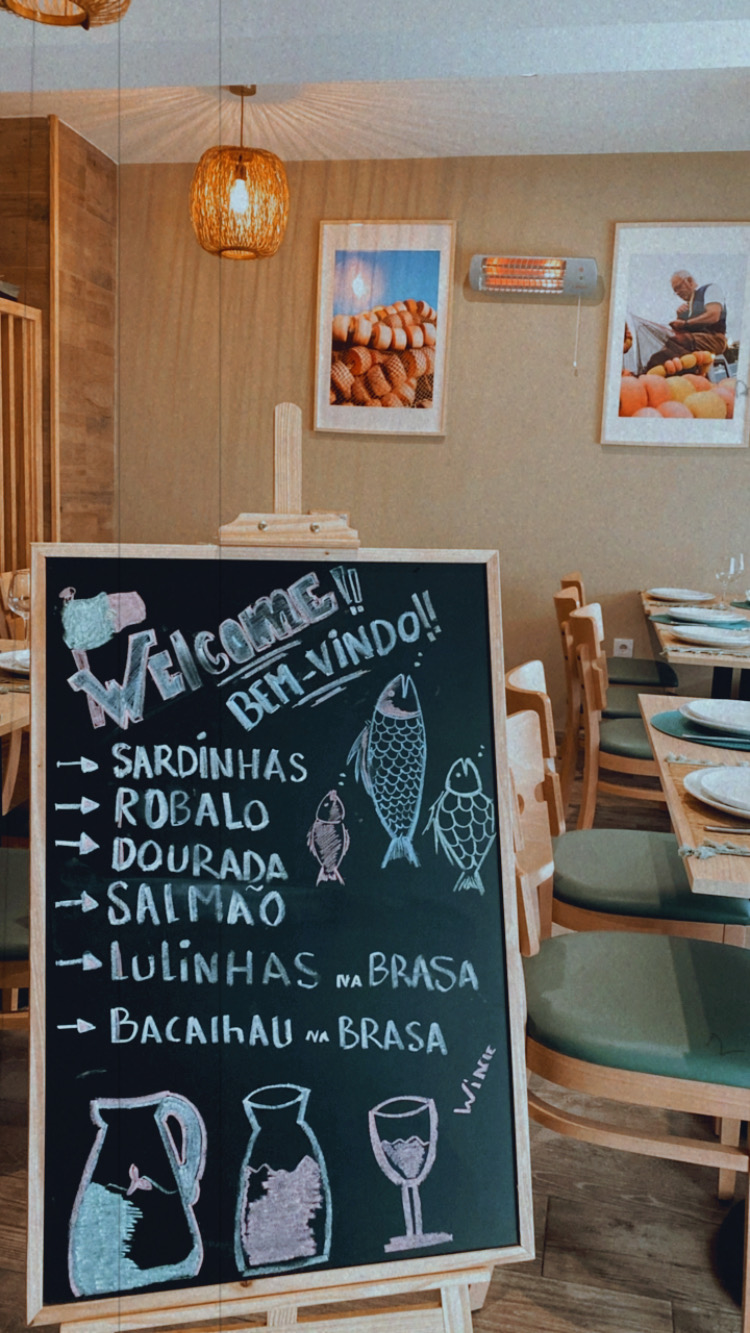 WELCOME!!
BEM-VINDO!!
→ SARDÍNHAS
→ ROBALO
→ DOURADA
→ SALMÃO
→ LULINHAS NA BRASA
→ BACALHAU NA BRASA
WINE